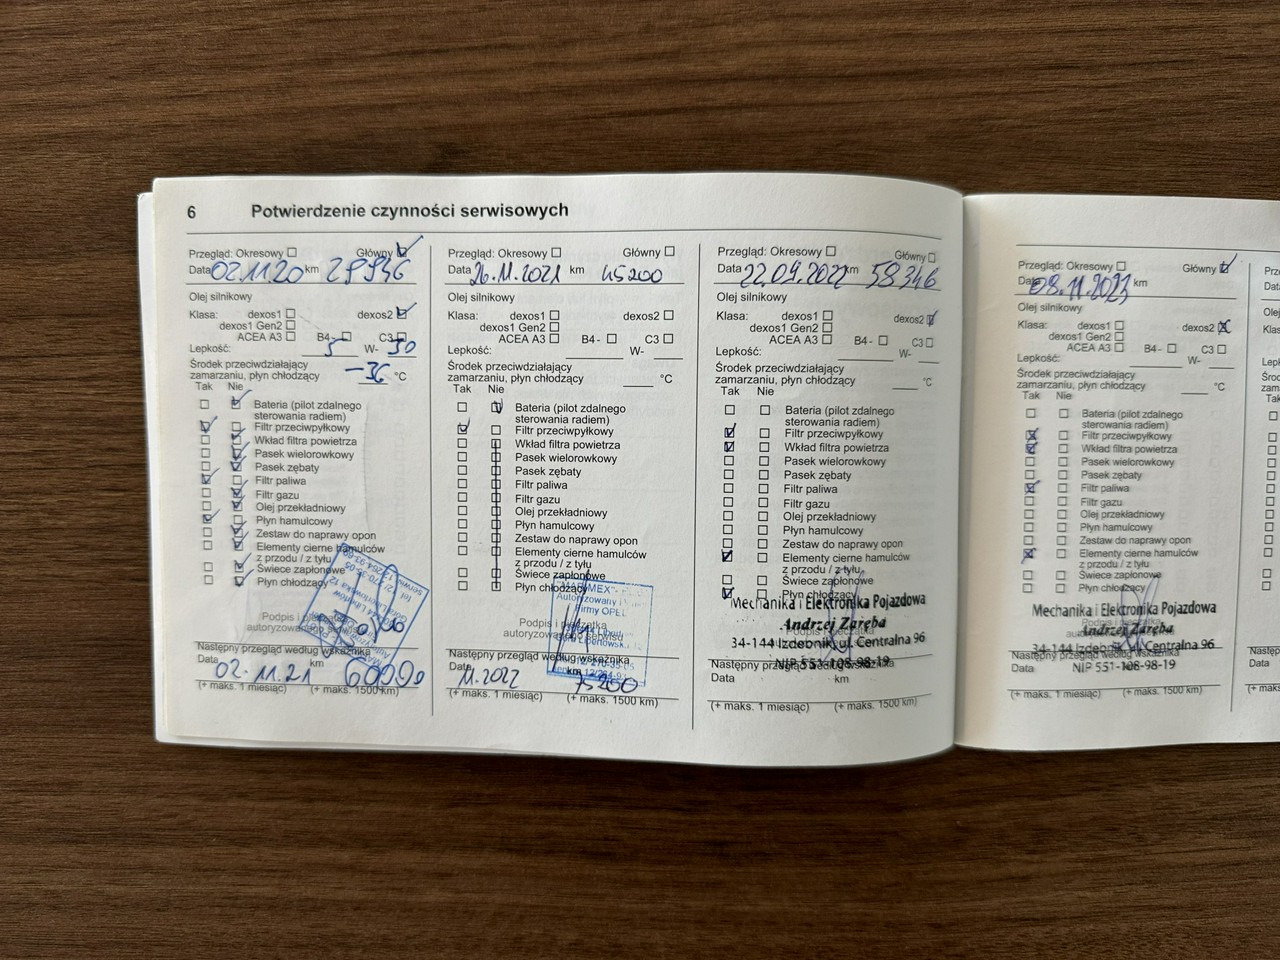 6 Potwierdzenie czynności serwisowych
Przegląd: Okresowy Główny
Data 02.11.20 km 29946
Olej silnikowy
Klasa: dexos1 dexos2
dexos1 Gen2
ACEA A3 B4- C3
Lepkość: 5 W- 30
Środek przeciwdziałający
zamarzaniu, płyn chłodzący -36 °C
Tak Nie
Bateria (pilot zdalnego
sterowania radiem)
Filtr przeciwpyłkowy
Wkład filtra powietrza
Pasek wielorowkowy
Pasek zębaty
Filtr paliwa
Filtr gazu
Olej przekładniowy
Płyn hamulcowy
Zestaw do naprawy opon
Elementy cierne hamulców
z przodu / z tyłu
Świece zapłonowe
Płyn chłodzący
Podpis i
autoryzow
Następny przegląd według wskaźnika
Data km
02.11.21 60000
(+ maks. 1 miesiąc) (+ maks. 1500 km)
Przegląd: Okresowy Główny
Data 26.11.2021 km 45200
Olej silnikowy
Klasa: dexos1 dexos2
dexos1 Gen2
ACEA A3 B4- C3
Lepkość: W-
Środek przeciwdziałający
zamarzaniu, płyn chłodzący °C
Tak Nie
Bateria (pilot zdalnego
sterowania radiem)
Filtr przeciwpyłkowy
Wkład filtra powietrza
Pasek wielorowkowy
Pasek zębaty
Filtr paliwa
Filtr gazu
Olej przekładniowy
Płyn hamulcowy
Zestaw do naprawy opon
Elementy cierne hamulców
z przodu / z tyłu
Świece zapłonowe
Płyn chłodzący
Autoryzowany
Firmy OPEL
Podpis
autoryzowanego serwisu
Następny przegląd według wskaźnika
Data km
11.2022 75200
(+ maks. 1 miesiąc) (+ maks. 1500 km)
Przegląd: Okresowy Główny
Data 22.09.2022 km 58346
Olej silnikowy
Klasa: dexos1 dexos2
dexos1 Gen2
ACEA A3 B4- C3
Lepkość: W-
Środek przeciwdziałający
zamarzaniu, płyn chłodzący °C
Tak Nie
Bateria (pilot zdalnego
sterowania radiem)
Filtr przeciwpyłkowy
Wkład filtra powietrza
Pasek wielorowkowy
Pasek zębaty
Filtr paliwa
Filtr gazu
Olej przekładniowy
Płyn hamulcowy
Zestaw do naprawy opon
Elementy cierne hamulców
z przodu / z tyłu
Świece zapłonowe
Płyn chłodzący
Mechanika i Elektronika Pojazdowa
Andrzej Zaręba
34-144 Izdebnik, ul. Centralna 96
NIP 551-108-98-19
Następny przegląd według wskaźnika
Data km
(+ maks. 1 miesiąc) (+ maks. 1500 km)
Przegląd: Okresowy Główny
Data 08.11.2023 km
Olej silnikowy
Klasa: dexos1 dexos2
dexos1 Gen2
ACEA A3 B4- C3
Lepkość: W-
Środek przeciwdziałający
zamarzaniu, płyn chłodzący °C
Tak Nie
Bateria (pilot zdalnego
sterowania radiem)
Filtr przeciwpyłkowy
Wkład filtra powietrza
Pasek wielorowkowy
Pasek zębaty
Filtr paliwa
Filtr gazu
Olej przekładniowy
Płyn hamulcowy
Zestaw do naprawy opon
Elementy cierne hamulców
z przodu / z tyłu
Świece zapłonowe
Płyn chłodzący
Mechanika i Elektronika Pojazdowa
Andrzej Zaręba
34-144 Izdebnik, ul. Centralna 96
Następny przegląd według wskaźnika
NIP 551-108-98-19
Data km
(+ maks. 1 miesiąc) (+ maks. 1500 km)